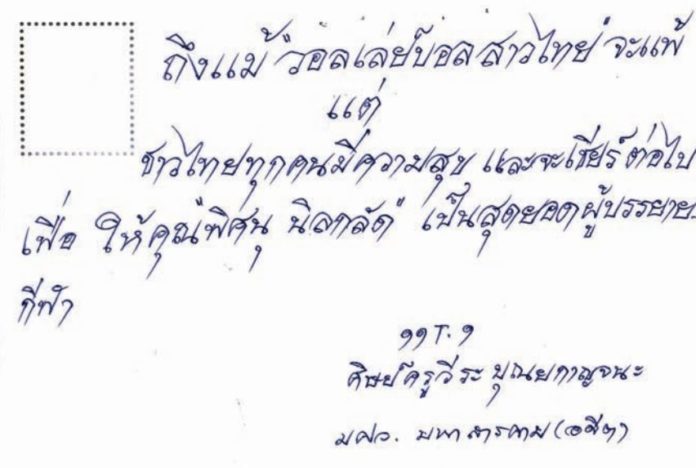 ถึงแม้ "วอลเลย์บอลสาวไทย" จะแพ้
แต่
ชาวไทยทุกคนมีความสุข และจะเชียร์ต่อไป
เพื่อ ให้คุณ"พิศณุ นิลกลัด" เป็นสุดยอดผู้บรรยาย
กีฬา
ศิษย์ครูวีระ บุณยกาญจนะ
มศว. มหาสารคาม (อดีต)